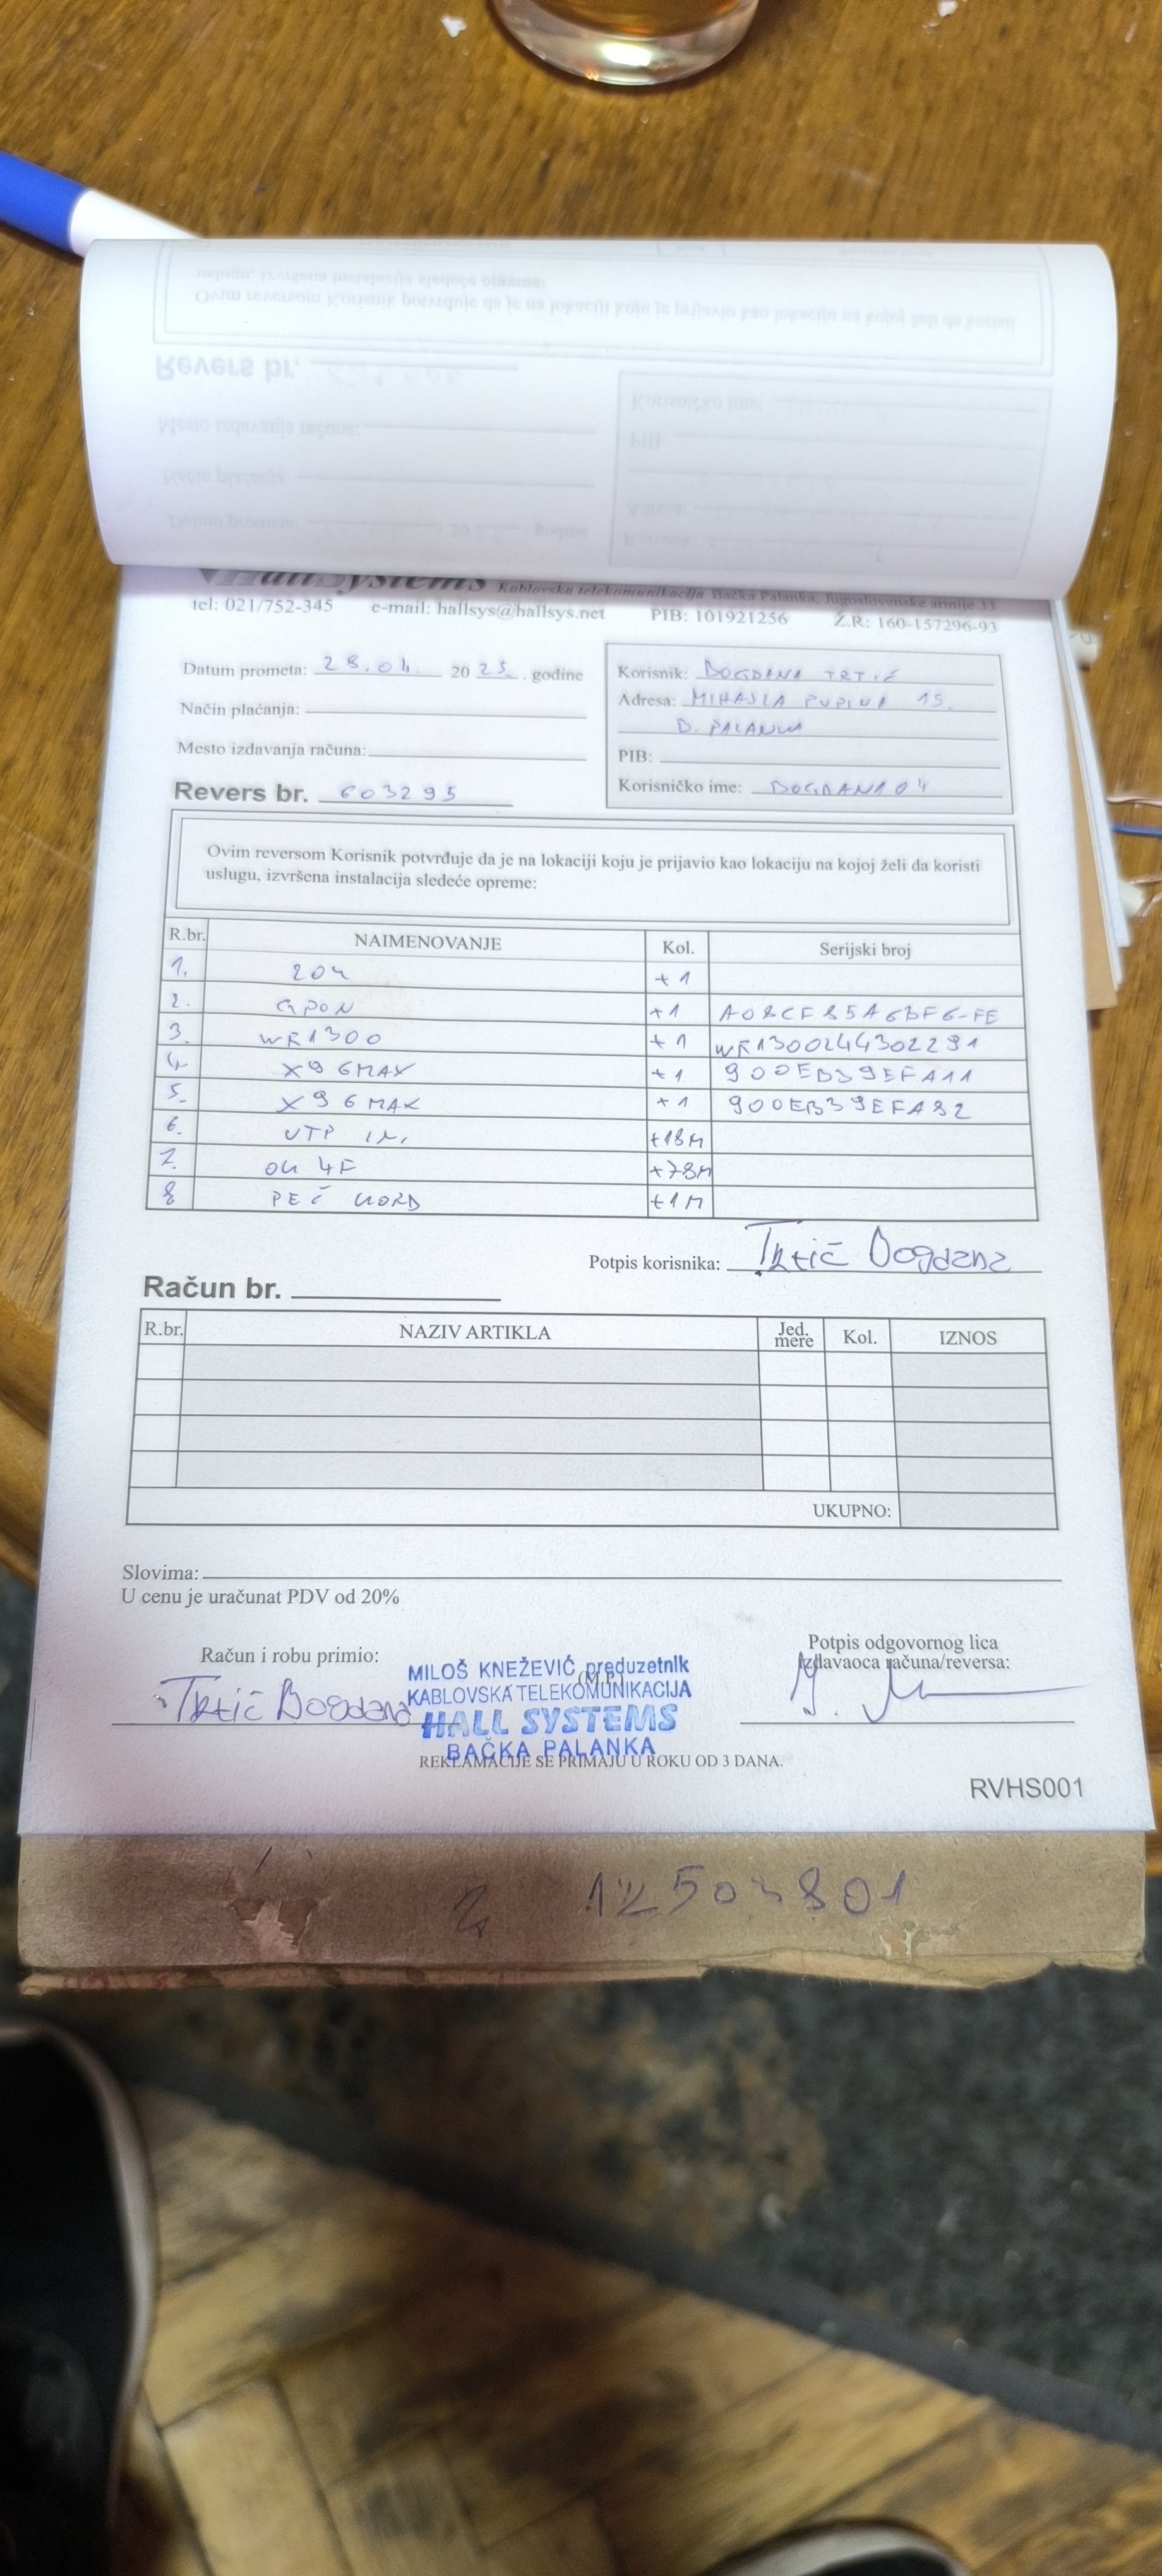 HallSystems Kablovska telekomunikacija Bačka Palanka, Jugoslovenske armije 33
tel: 021/752-345 e-mail: hallsys@hallsys.net PIB: 101921256 Ž.R: 160-157296-93
Datum prometa: 28.04. 2025. godine
Način plaćanja:
Mesto izdavanja računa:
Revers br. 603295
Korisnik: BOGDANA TRTIĆ
Adresa: MIHAJLA PUPINA 15.
B. PALANKA
PIB:
Korisničko ime: BOGDANA04
Ovim reversom Korisnik potvrđuje da je na lokaciji koju je prijavio kao lokaciju na kojoj želi da koristi
uslugu, izvršena instalacija sledeće opreme:
R.br. NAIMENOVANJE Kol. Serijski broj
1. ZOK +1
2. GPON +1 A08CF85A6BF6-FE
3. WR1300 +1 WR1300244302291
4. X96MAX +1 900EB39EFA11
5. X96MAX +1 900EB39EFA92
6. UTP +18M
7. OK 4F +78M
8 KORD +1M
Potpis korisnika: Trtić Bogdana
Račun br.
R.br. NAZIV ARTIKLA Jed. mere Kol. IZNOS
UKUPNO:
Slovima:
U cenu je uračunat PDV od 20%
Račun i robu primio:
Trtić Bogdana
MILOŠ KNEŽEVIĆ preduzetnik
(M.P.)
KABLOVSKA TELEKOMUNIKACIJA
HALL SYSTEMS
BAČKA PALANKA
Potpis odgovornog lica
izdavaoca računa/reversa:
REKLAMACIJE SE PRIMAJU U ROKU OD 3 DANA.
RVHS001